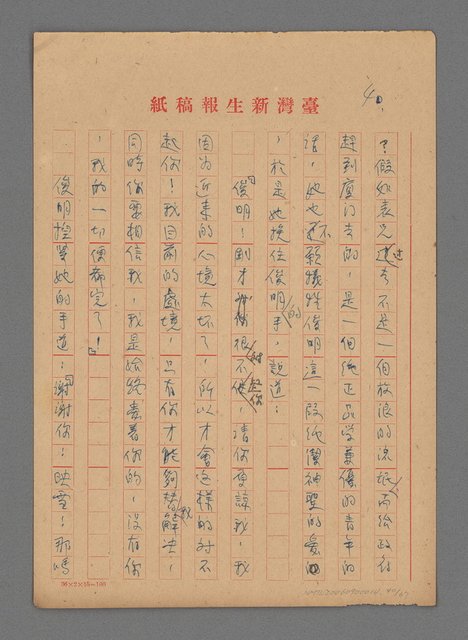 40.
臺灣新生報稿紙
？假如表兄過去不是一個放浪的流氓，而給政府
趕到廈門去的，是一個純正品學兼優的青年的
話，她也不願犧牲俊明這一段純潔神聖的愛。
，於是她挽住俊明的手，說道：
「俊明！剛才我很對不起你，請你原諒我，我
因為近來的心境太壞了，所以才會這樣的對不
起你！我目前的處境，只有你才能夠替我解決，
同時你要相信我，我是始終愛着你的，沒有你
，我的一切便都完了！」
俊明握緊她的手道：「謝謝你！映雪！那嗎
36×2×25=100